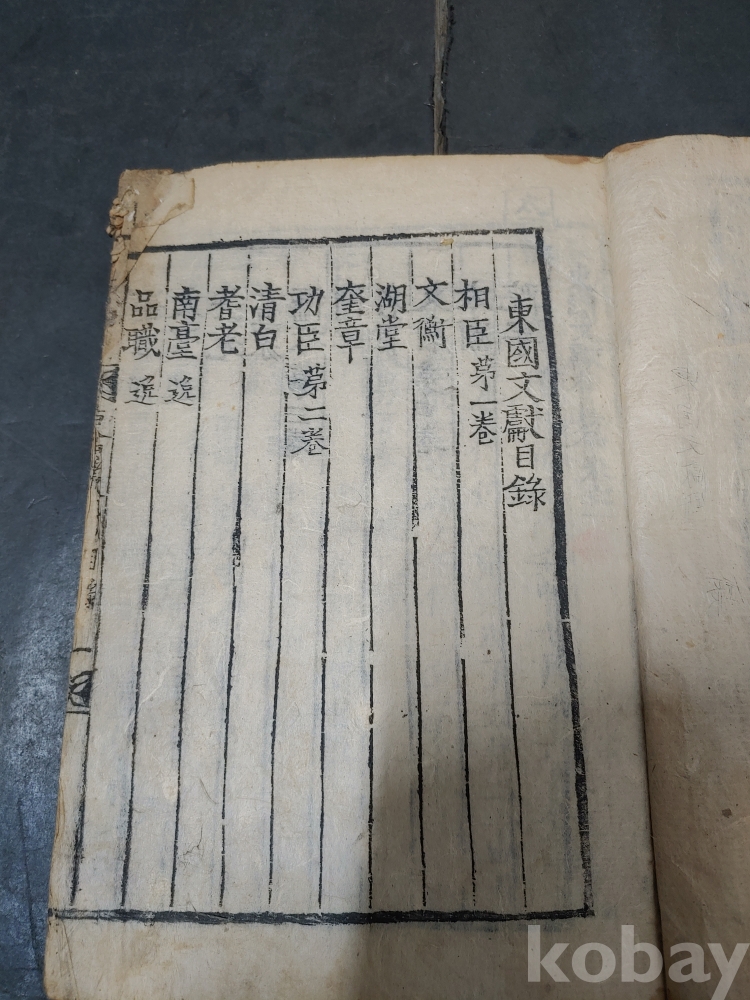 東國文獻目錄
相臣 苐一巻
文衡
湖堂
奎章
功臣 苐二巻
清白
耆老
南臺 逸
品職 逸
kobay